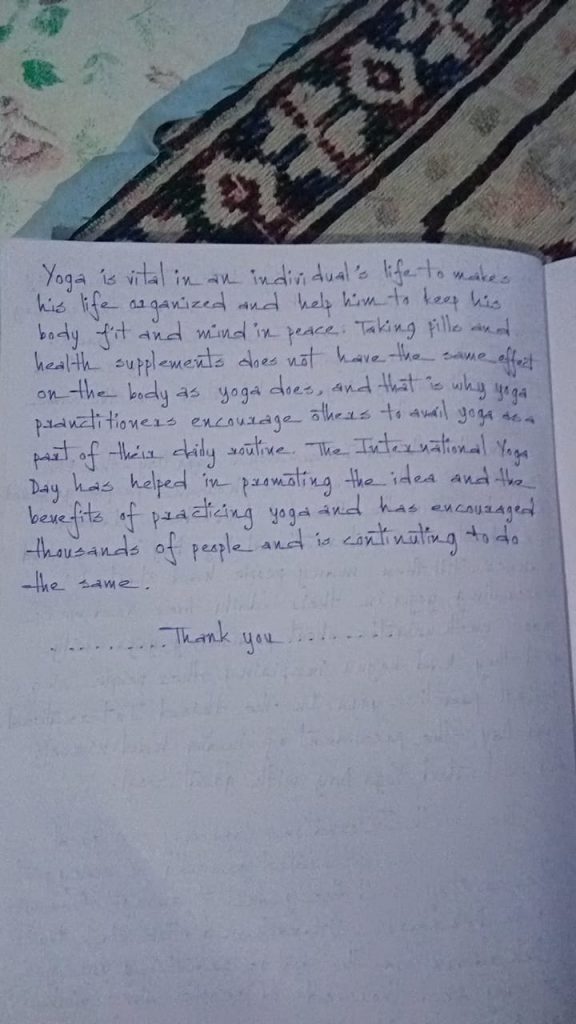 Yoga is vital in an individual's life to makes
his life organized and help him to keep his
body fit and mind in peace. Taking pills and
health supplements does not have the same effect
on the body as yoga does, and that is why yoga
pranctitioners encourage others to avail yoga as a
part of their daily routine. The International Yoga
Day has helped in promoting the idea and the
benefits of practicing yoga and has encouraged
thousands of people and is continuting to do
the same.
.........Thank you..........